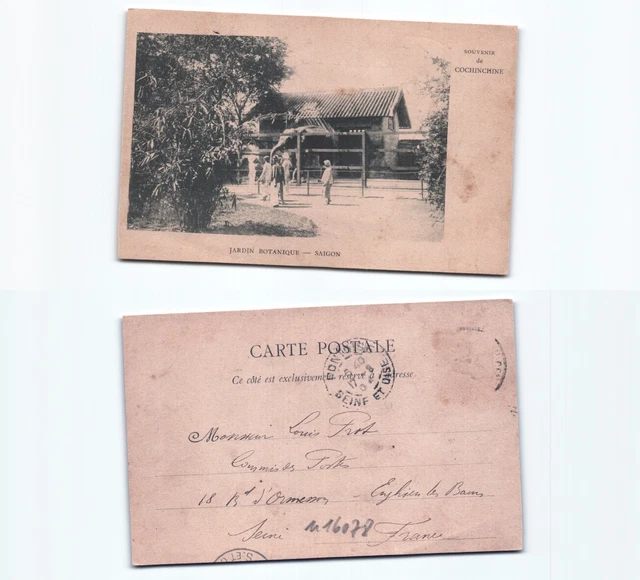 SOUVENIR
de
COCHINCHINE
JARDIN BOTANIQUE — SAIGON
CARTE POSTALE
Ce côté est exclusivement réservé à l'adresse.
SEINE ET OISE
Monsieur Louis Frot
Commis des Postes
18 Bd d'Ormesson - Enghien les Bains
Seine
France
n16078